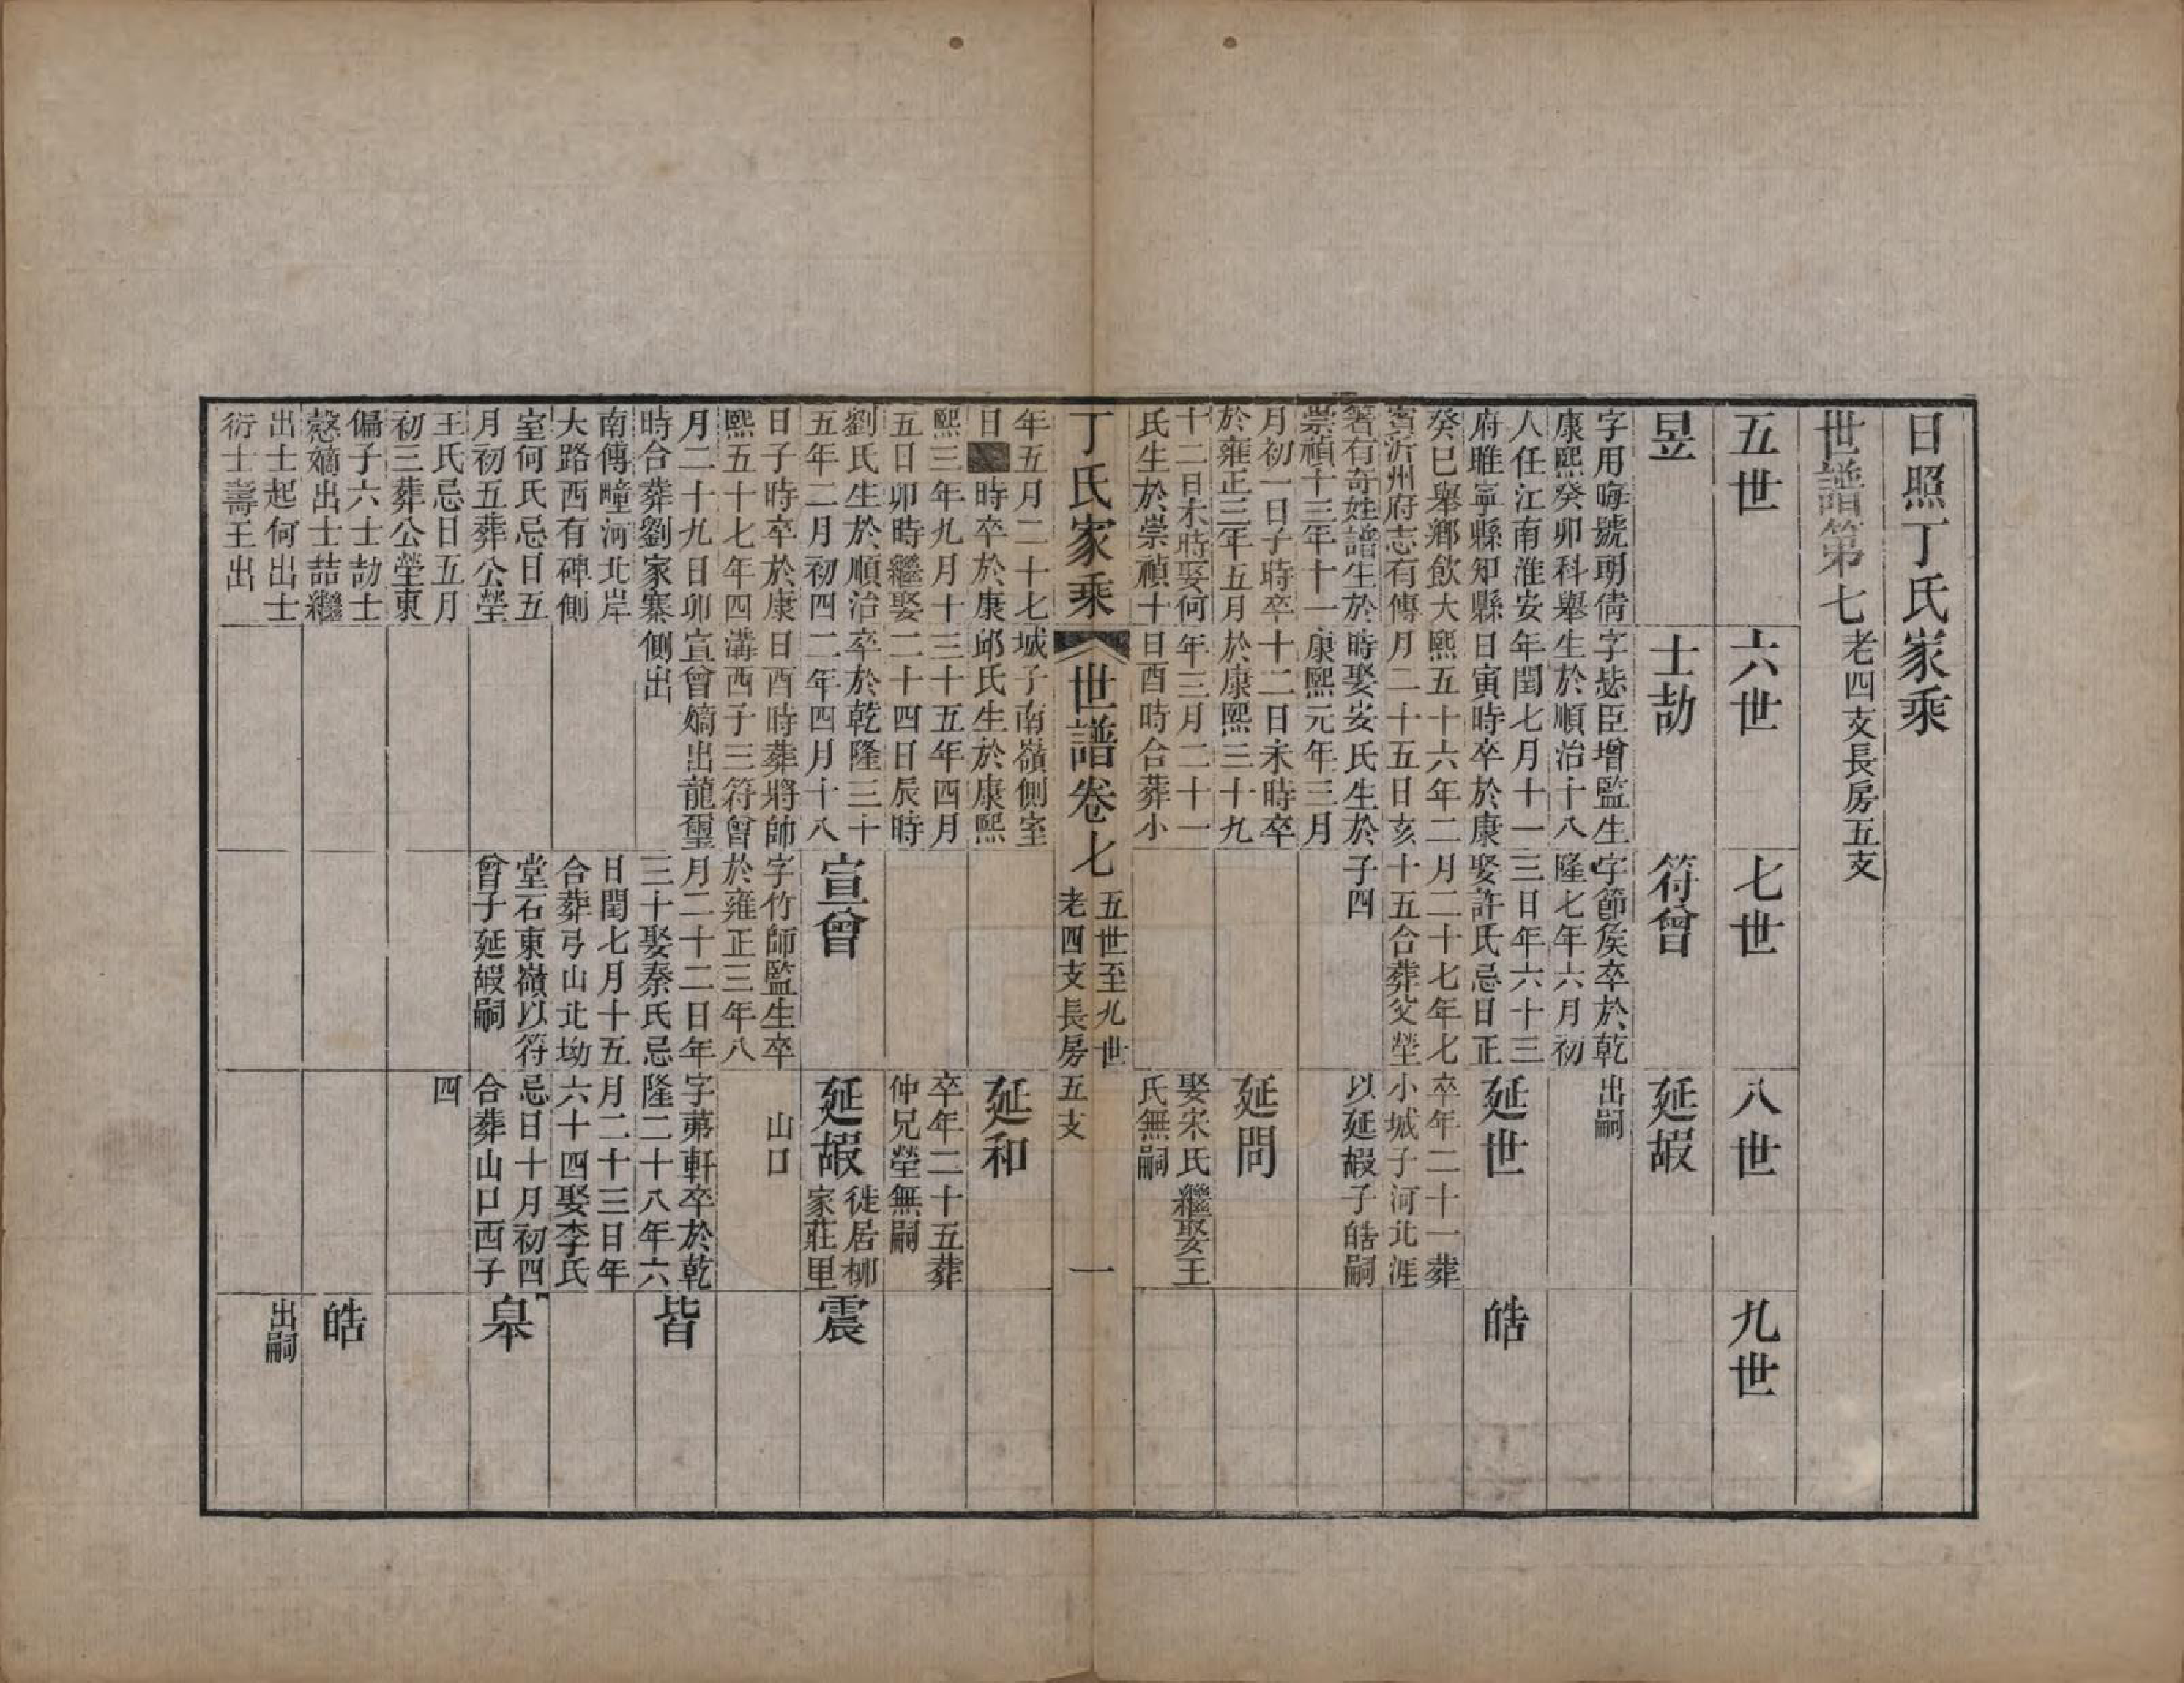 日照丁氏家乘
世譜第七 老四支長房五支
五世
六世
七世
八世
九世
昱
字用晦號明倩
康熙癸卯科舉
人任江南淮安
府睢寧縣知縣
癸巳舉鄉飲大
賓沂州府志有傳
箸有奇姓譜生於
崇禎十三年十一
月初一日子時卒
於雍正三年五月
十二日未時娶何
氏生於崇禎十
年五月二十七
日■時卒於康
熙三年九月十三
五日卯時繼娶
劉氏生於順治
五年二月初四
日子時卒於康
熙五十七年四
月二十九日卯
時合葬劉家寨
南傅疃河北岸
大路西有碑側
室何氏忌日五
月初五葬公塋
王氏忌日五月
初三葬公塋東
偏子六士劼士
愨嫡出士喆繼
出士起何出士
衍士壽王出
士劼
字毖臣增監生
生於順治十八
年閏七月十一
日寅時卒於康
熙五十六年二
月二十五日亥
時娶安氏生於
康熙元年三月
十二日未時卒
於康熙三十九
年三月二十一
日酉時合葬小
城子南嶺側室
邱氏生於康熙
十五年四月
二十四日辰時
卒於乾隆三十
二年四月十八
日酉時葬將帥
溝西子三符曾
宣曾嫡出龍璽
側出
符曾
字節矦卒於乾
隆七年六月初
三日年六十三
娶許氏忌日正
月二十七年七
十五合葬父塋
子四
宣曾
字竹師監生卒
於雍正三年八
月二十二日年
三十娶秦氏忌
日閏七月十五
合葬弓山北坳
堂石東嶺以符
曾子延嘏嗣
延嘏
出嗣
延世
卒年二十一葬
小城子河北涯
以延嘏子皓嗣
延問
娶宋氏繼娶王
氏無嗣
延和
卒年二十五葬
仲兄塋無嗣
延嘏 徙居柳家莊里
山口
字茀軒卒於乾
隆二十八年六
月二十三日年
六十四娶李氏
忌日十月初四
合葬山口西子
四
皓
震
皆
皋
皓
出嗣
丁氏家乘
世譜卷七
五世至九世
老四支長房五支
一